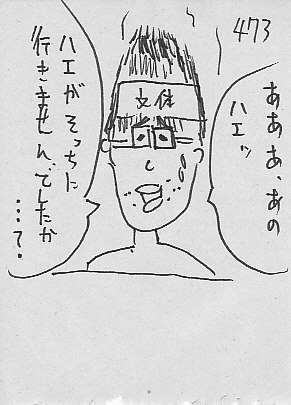 473
あああ、あの
ハエッ
文体
ハエがそっちに
行きませんでしたか
……て.